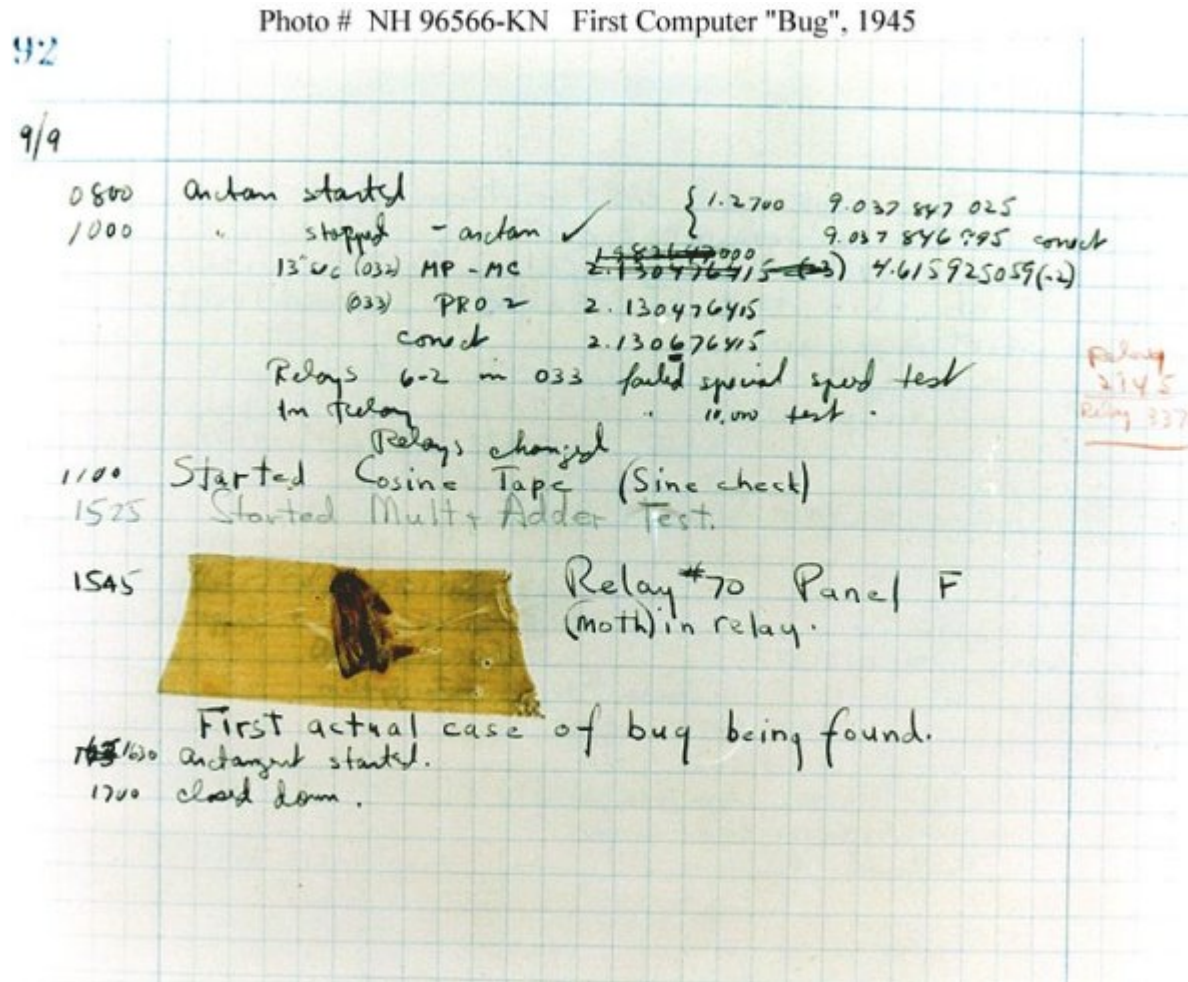 Photo # NH 96566-KN First Computer "Bug", 1945
92
9/9
0800 Antan started
1000 " stopped - antan ✓ { 1.2700 9.037 847 025
9.037 846 995 conect
13"uc (032) MP - MC 2.130476415 (-3) 4.615925059(-2)
(033) PRO 2 2.130476415
conect 2.130676415
Relays 6-2 in 033 failed special speed test
In Relay " 10,000 test.
Relay
Relay 337
Relays changed
1100 Started Cosine Tape (Sine check)
1525 Started Mult + Adder Test.
1545 Relay #70 Panel F
(moth) in relay.
First actual case of bug being found.
1630 Antangent started.
1700 closed down.